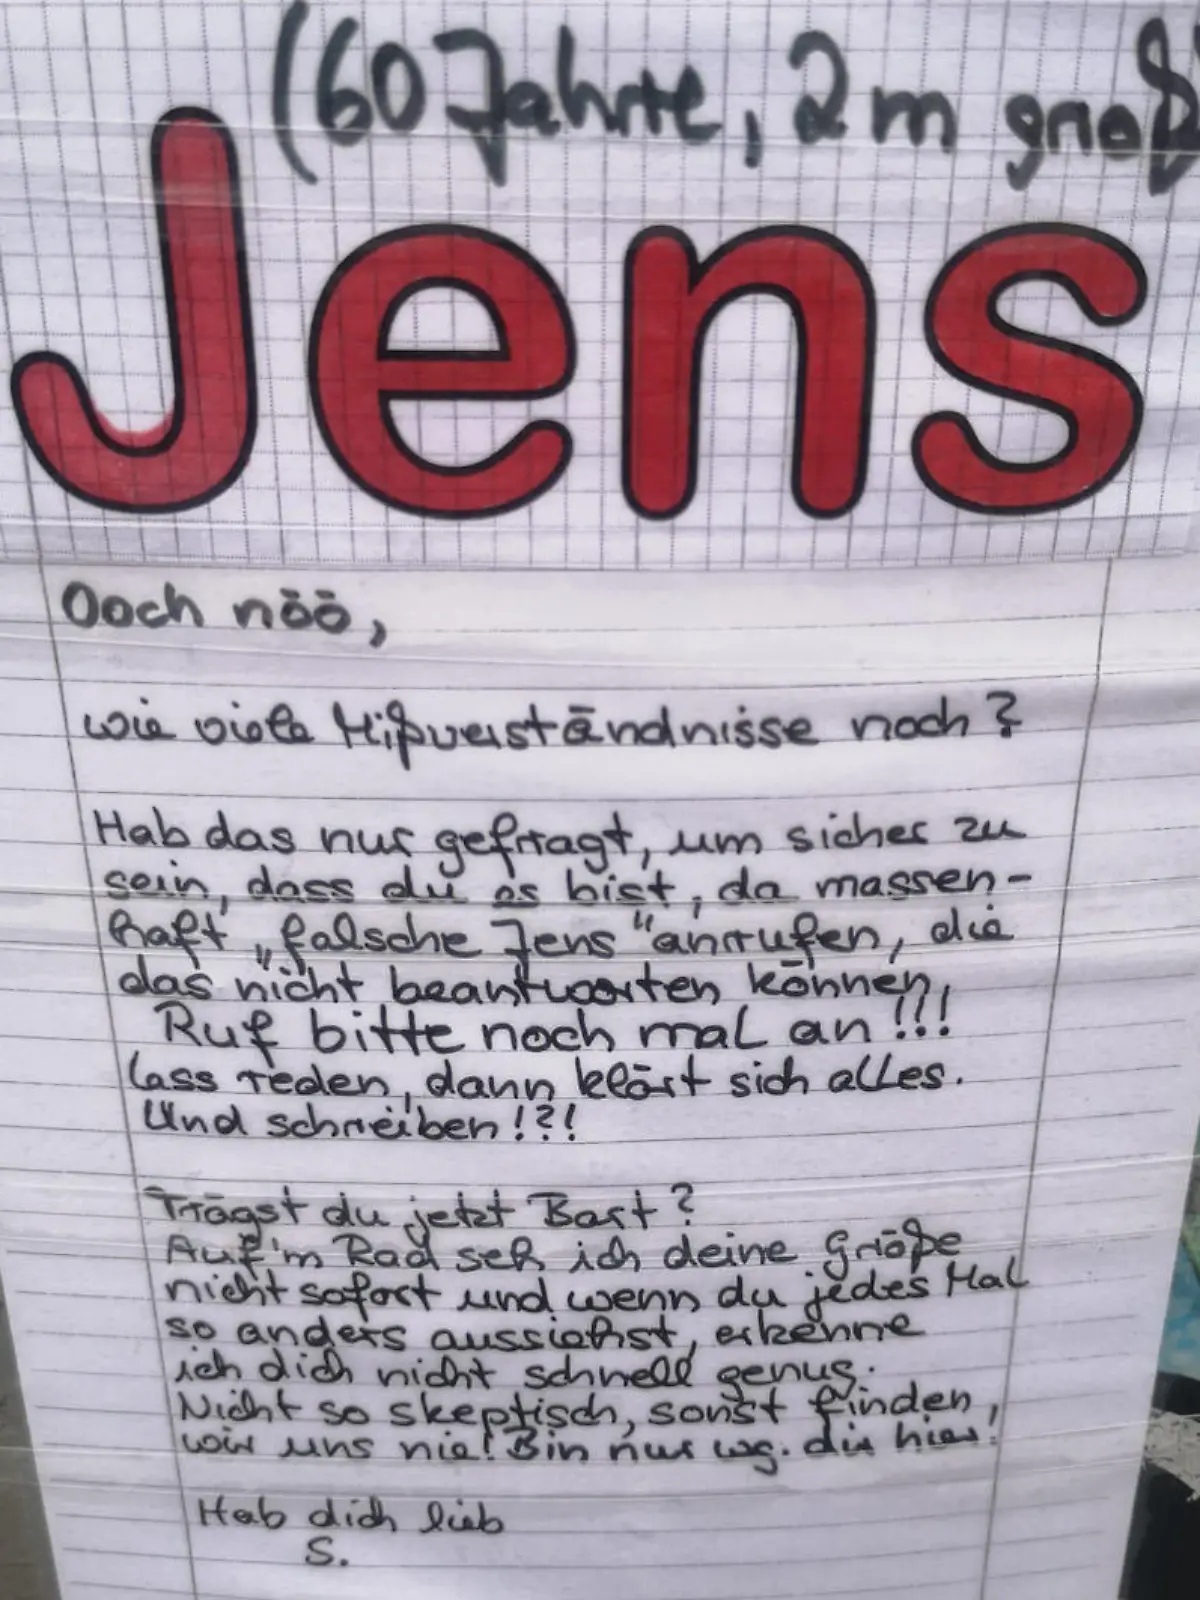 (60 Jahre, 2 m groß)
Jens
Ooch nöö,
wie viele Mißverständnisse noch?
Hab das nur gefragt, um sicher zu
sein, dass du es bist, da massen-
haft „falsche Jens“ anrufen, die
das nicht beantworten können,
Ruf bitte noch mal an!!!
Lass reden, dann klärt sich alles.
Und schreiben!?!
Trägst du jetzt Bart?
Auf'm Rad seh ich deine Größe
nicht sofort und wenn du jedes Mal
so anders aussiehst, erkenne
ich dich nicht schnell genug.
Nicht so skeptisch, sonst finden
wir uns nie! Bin nur wg. dir hier!
Hab dich lieb
S.